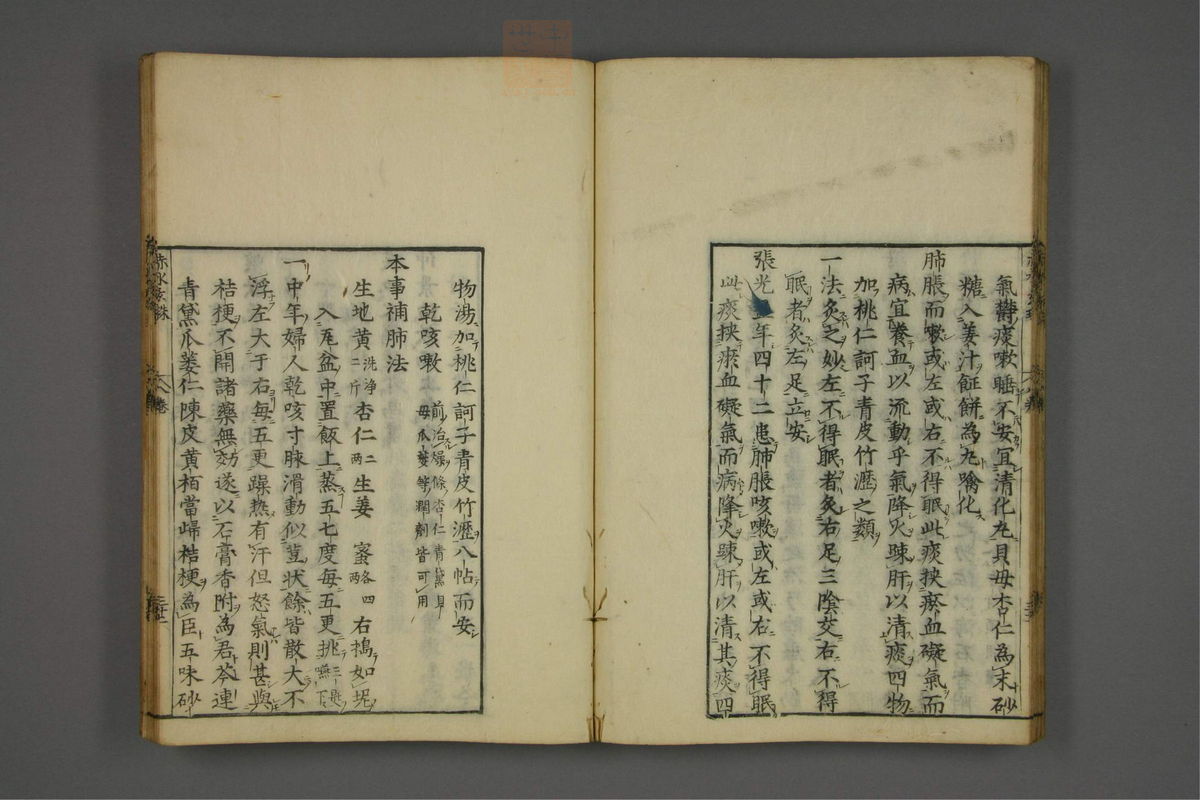 氣鬱痰嗽睡不安宜清化丸貝母杏仁為末砂
糖入姜汁䴵餅為丸噙化
肺脹而嗽或左或右不得眠此痰挾瘀血礙氣而
病宜養血以流動乎氣降火疎肝以清痰四物
加桃仁訶子青皮竹瀝之類
一法灸之妙左不得眠者灸右足三陰艾右不得
眠者灸左足立安
張光 年四十二患肺脹咳嗽或左或右不得眠
此痰挾瘀血礙氣而病降火疎肝以清其痰四
物湯加桃仁訶子青皮竹瀝八帖而安
乾咳嗽 前治燥條杏仁青黛貝母瓜蔞等潤劑皆可用
本事補肺法
生地黃 二斤洗淨 杏仁 二兩 生姜 蜜 各四兩 右搗如泥
入瓦盆中置飯上蒸五七度每五更挑三匙嚥下
一中年婦人乾咳寸脉滑動似荳状餘皆散大不
浮左大于右每五更躁热有汗但怒氣則甚與
桔梗不開諸藥無効遂以石膏香附為君芩連
青黛瓜蔞仁陳皮黃栢當歸桔梗為臣五味砂
赤水玄珠
卷